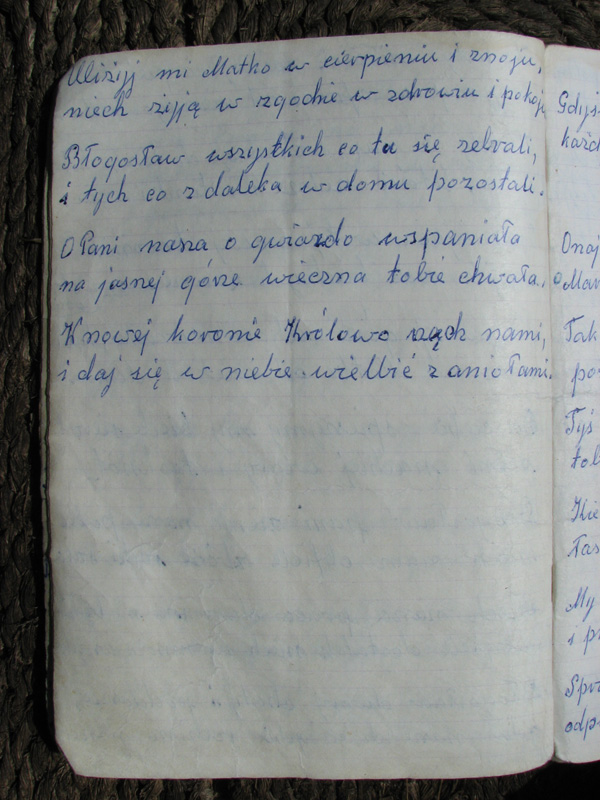 Ulżyj mi Matko w cierpieniu i znoju,
niech żyją w zgodzie w zdrowiu i pokoju
Błogosław wszystkich co tu się zebrali,
i tych co z daleka w domu pozostali.
O Pani nasza o gwiazdo wspaniała
na jasnej górze wieczna tobie chwała.
K nowej koronie Królowo rządź nami,
i daj się w niebie wielbić z aniołami.
Gdyś
każd
Onaj
o Mar
Tak
po
Tyś
tob
Kie
łas
My
i pr
Spra
odp